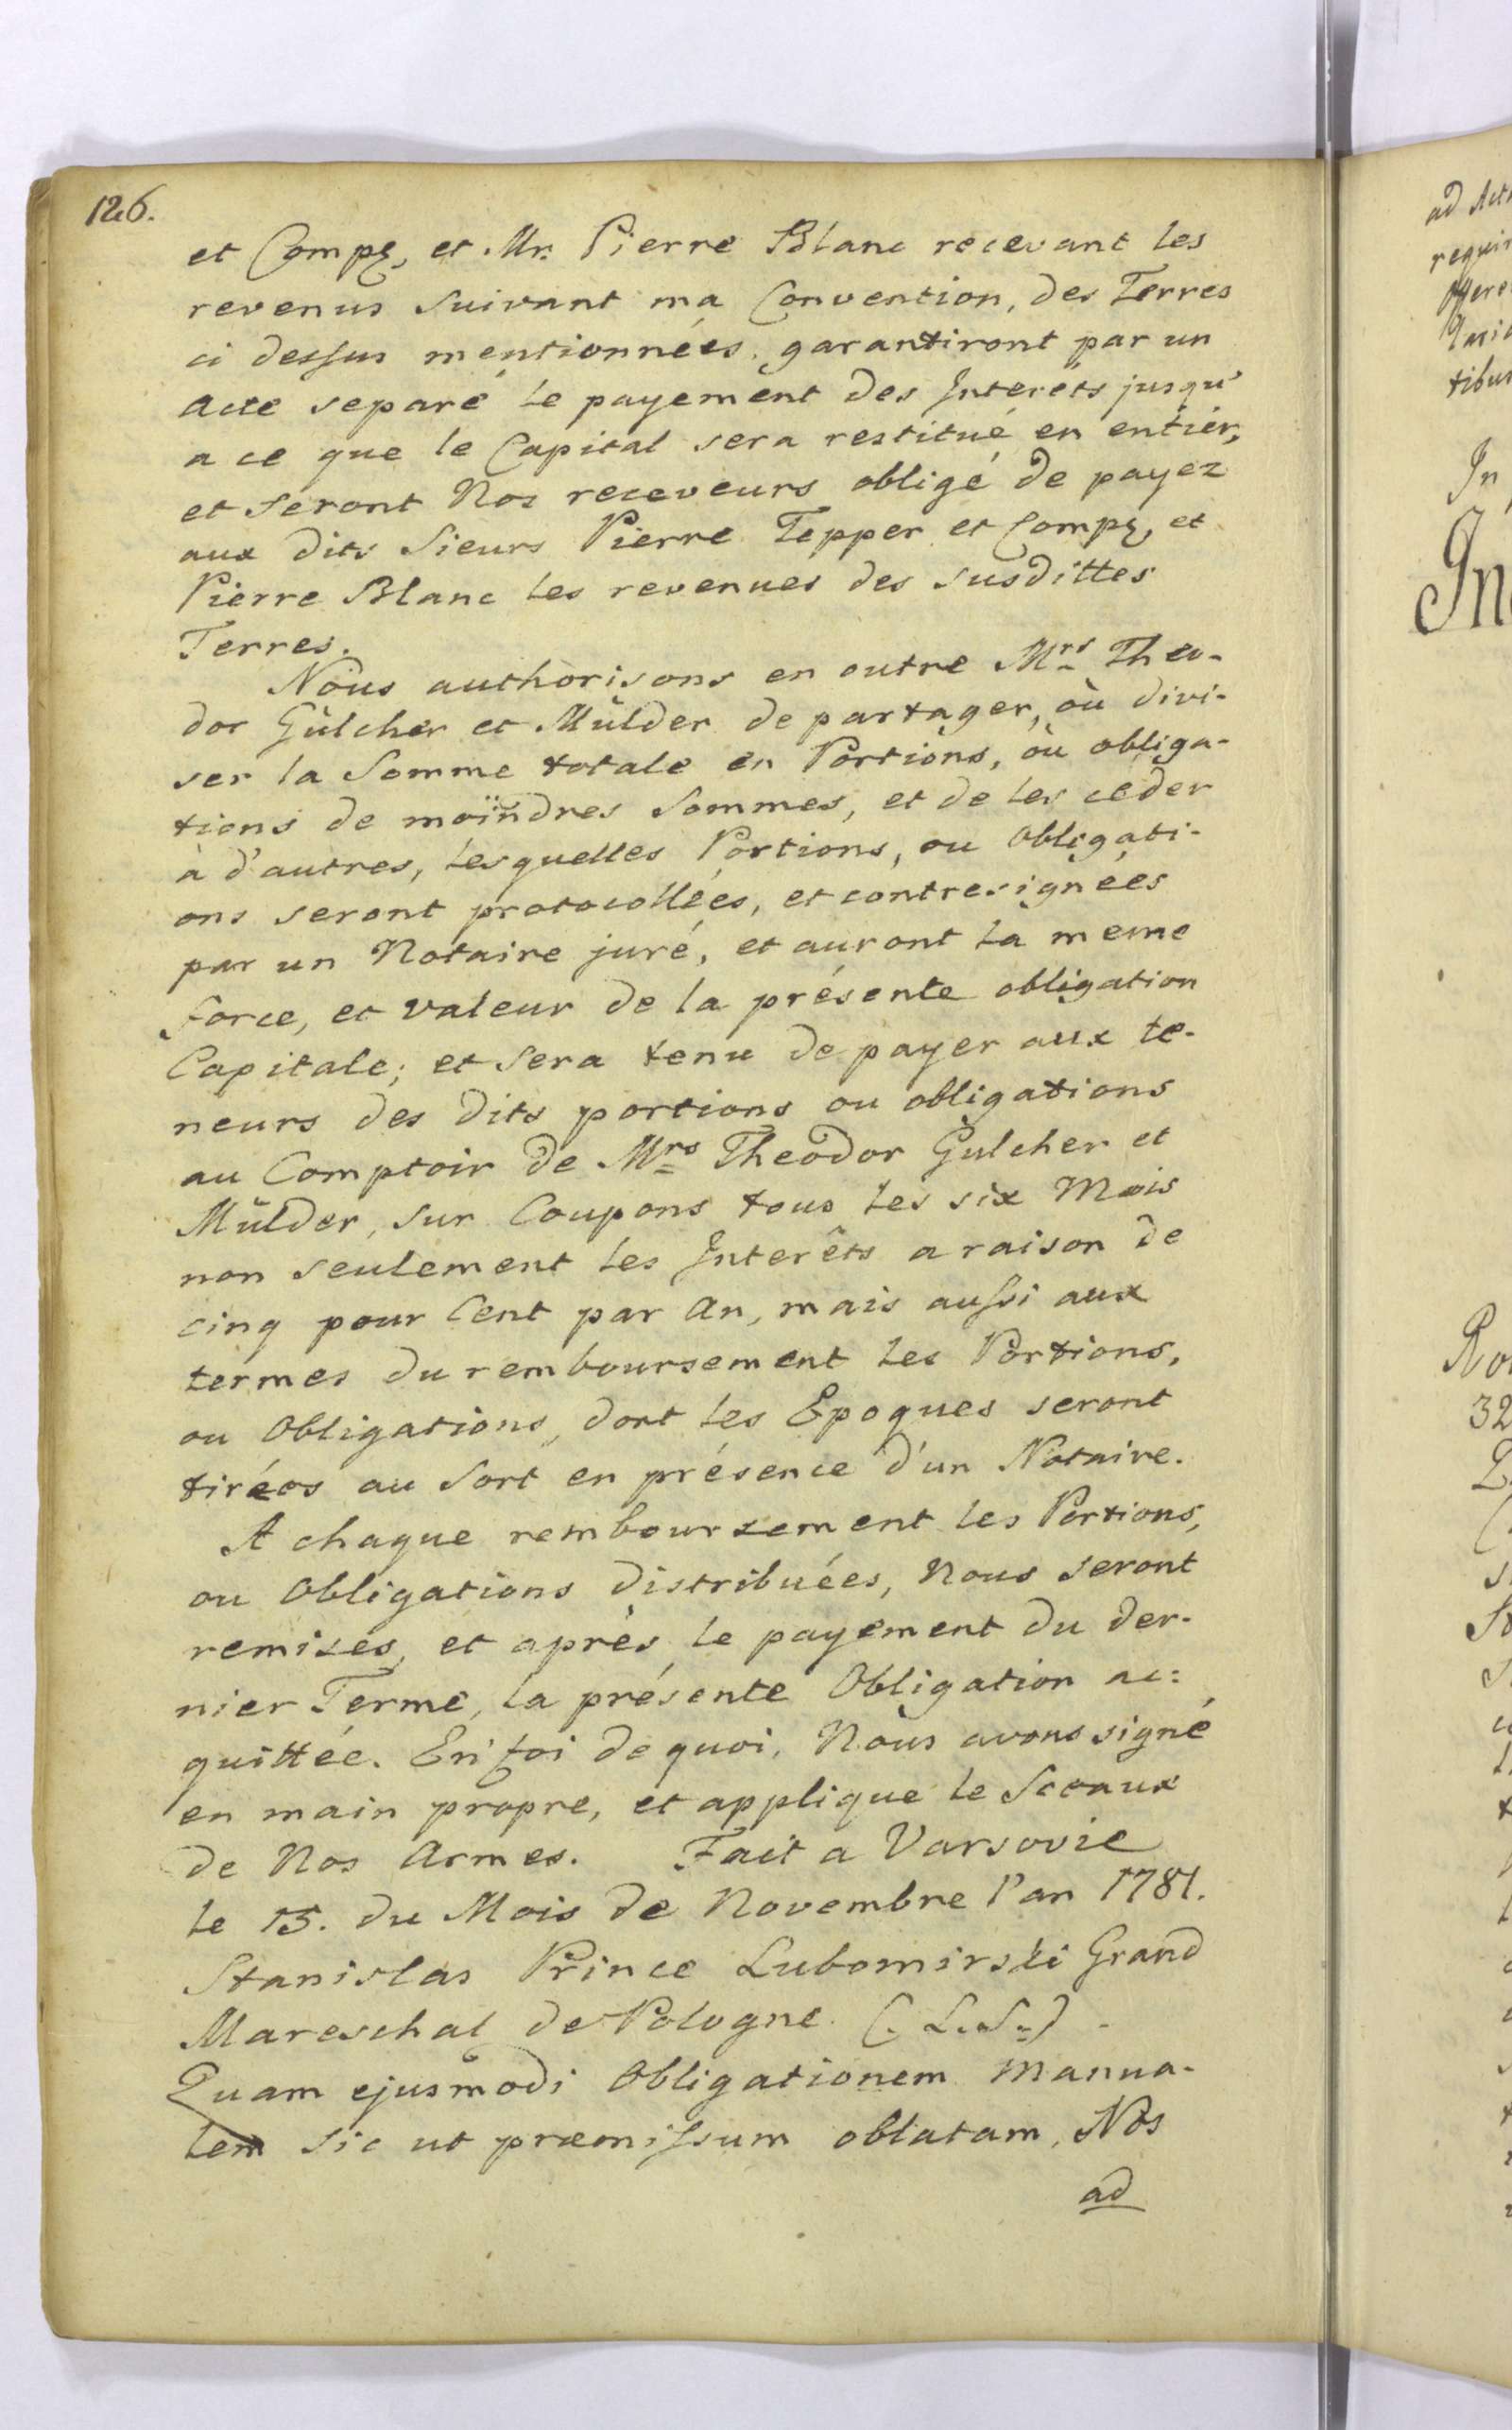 126.
et Compe, et Mr: Pierre Blanc recevant les
revenus suivant ma Convention, des Terres
ci dessus mentionnées, garantiront par un
Acte separé le payement des Interêts jusqu'
a ce que le Capital sera restitué en entier,
et seront Nos receveurs obligé de payez
aux dits Sieurs Pierre Tepper et Compe, et
Pierre Blanc les revenues des susdittes
Terres.
Nous authorisons en outre Mrs Theo-
dor Gülcher et Mülder de partager, où divi-
ser la Somme totale en Portions, où obliga-
tions de moïndres Sommes, et de les ceder
à d'autres, lesquelles Portions, ou Obligati-
ons seront protocollées, et contresignées
par un Notaire juré, et auront la meme
force, et valeur de la présente obligation
Capitale; et sera tenu de payer aux te-
neurs des dits portions ou obligations
au Comptoir de Mrs Theodor Gulcher et
Mülder, sur Coupons tous les six Mois
non seulement les Interêts a raison de
cinq pour Cent par An, mais aussi aux
termes du remboursement les Portions,
ou Obligations, dont les Epoques seront
tiréos au Sort en présence d'un Notaire.
A chaque remboursement les Portions,
ou Obligations distribuées, Nous seront
remises, et après le payement du der-
nier Terme, la présente Obligation ac=
quittée. En foi de quoi, Nous avons signé
en main propre, et applique le Sceaux
de Nos Armes. Fait a Varsovie
le 15. du Mois de Novembre l'an 1781.
Stanislas Prince Lubomirski Grand
Mareschal de Pologne. (: L.S:)
Quam ejusmodi Obligationem Manua-
lem sic ut præmissum oblatam, Nos
ad
ad Act
requi
In
In
Ro
32